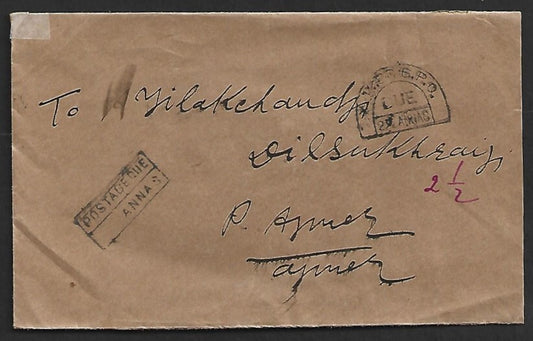 To Tilakchandji
Dilsukhraiji
P. Ajmer
Ajmer
2 1/2
POSTAGE DUE
ANNAS
DUE